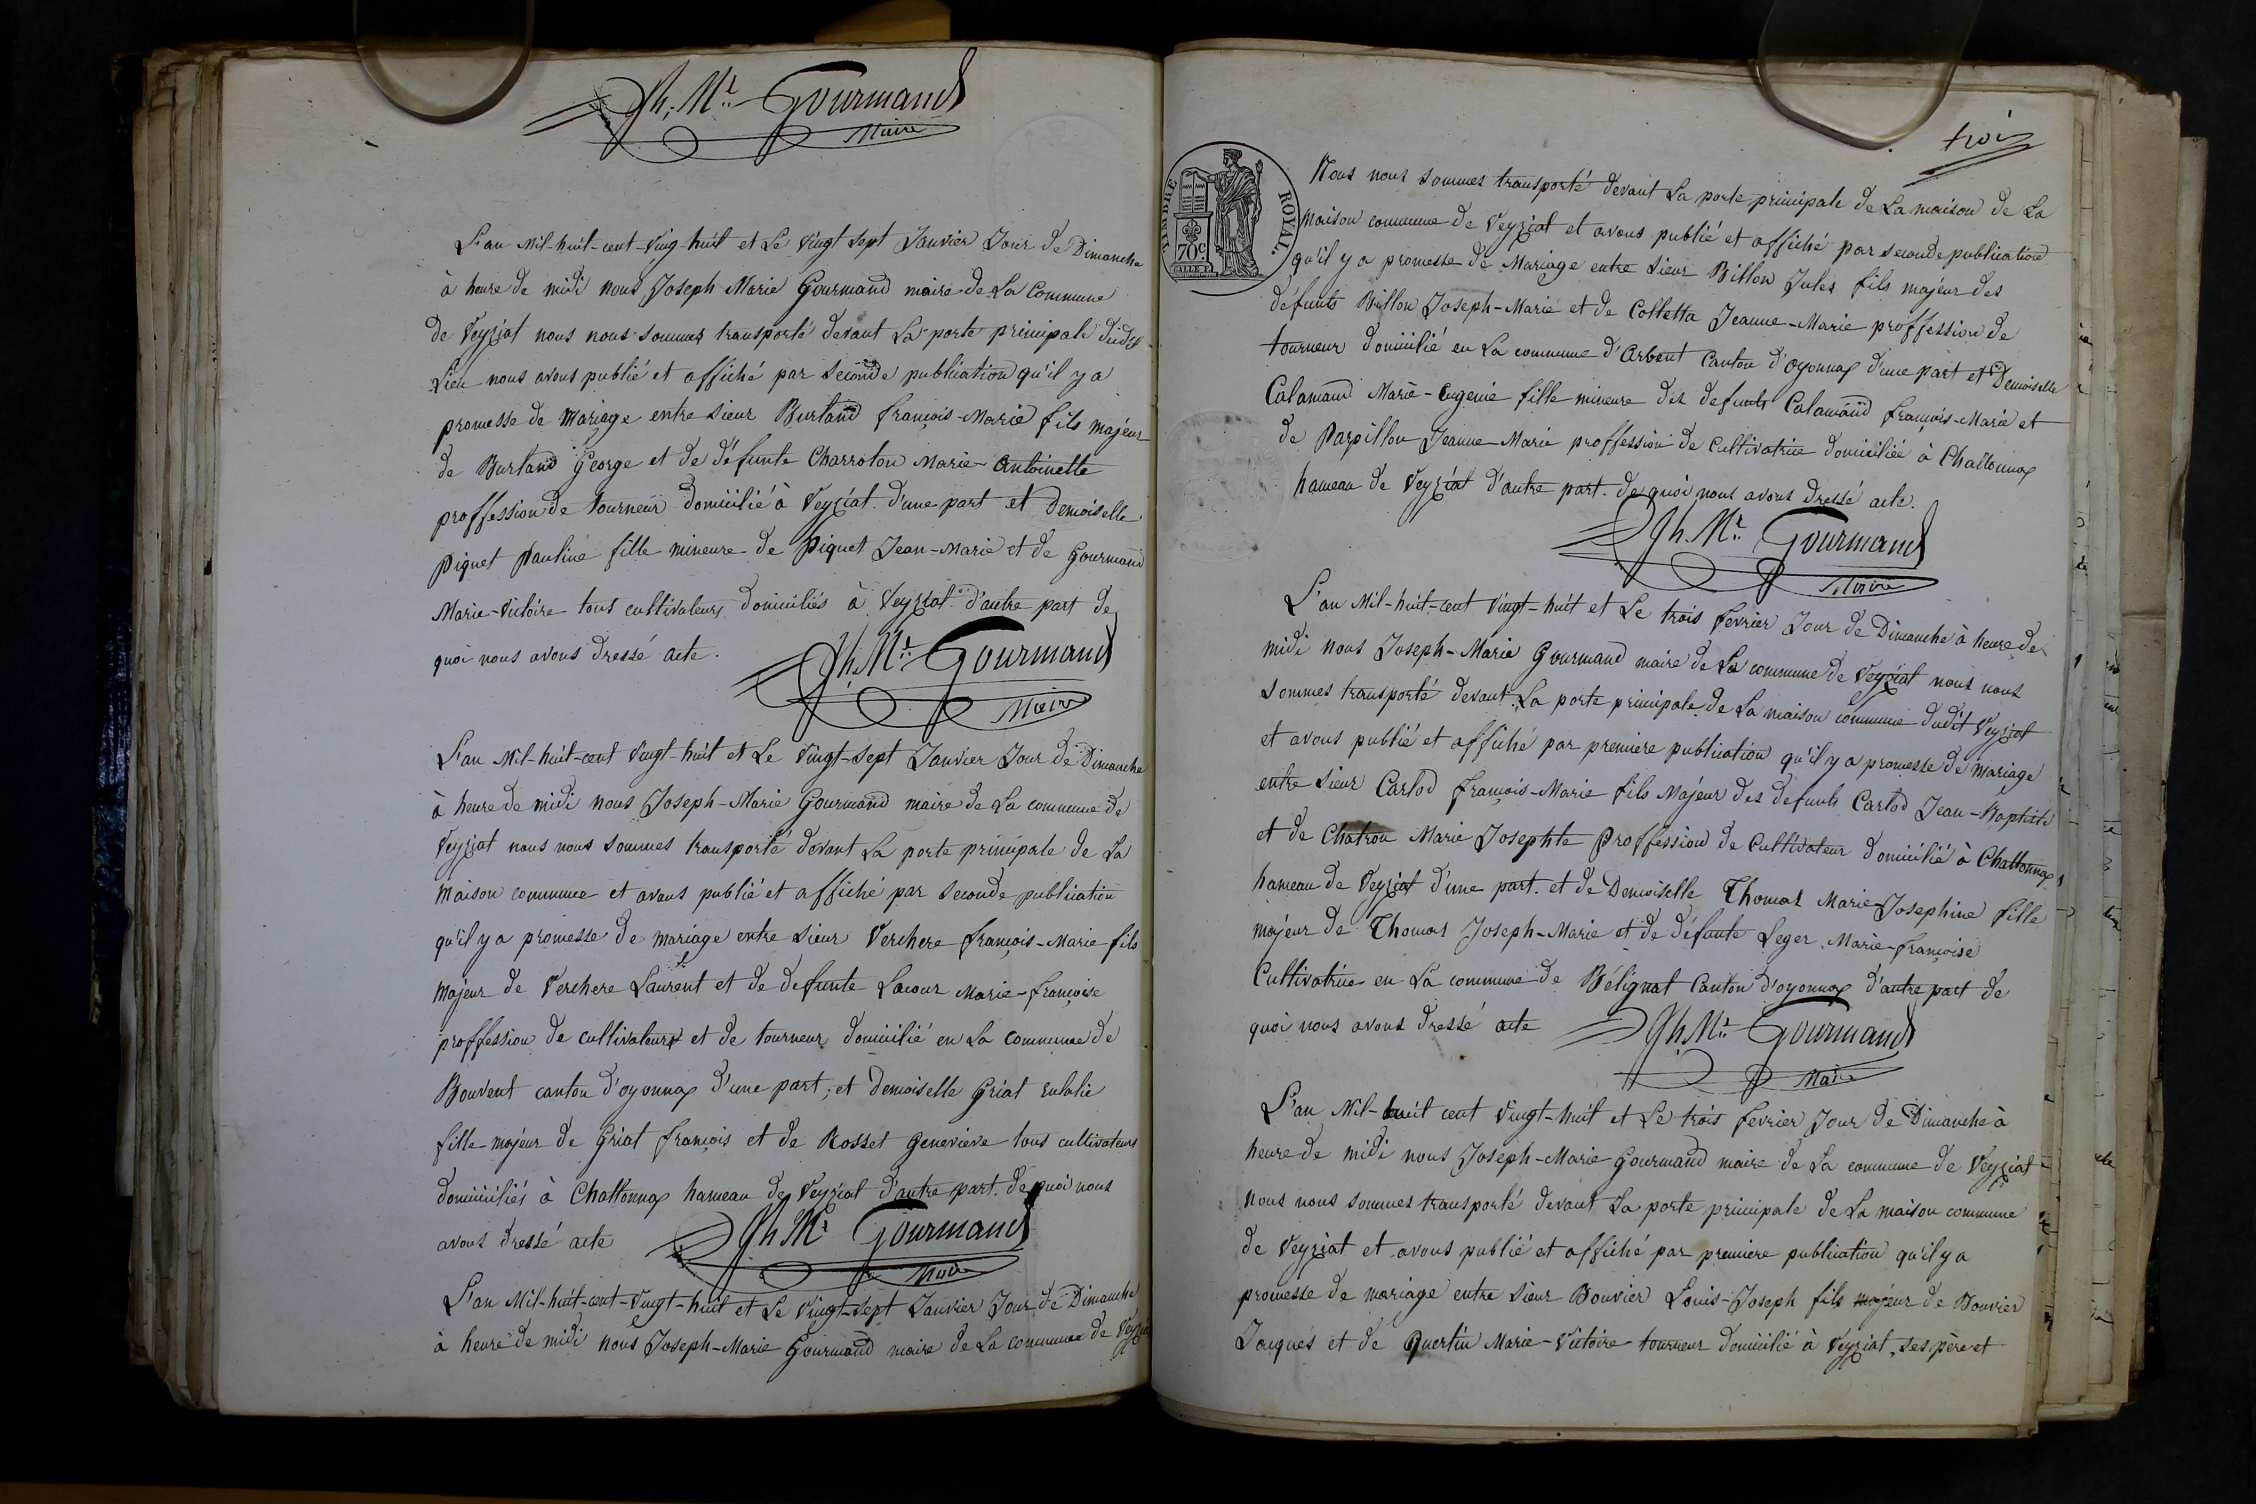 Jh. Mie Gourmand
Maire
L'an Mil-huit-cent-Ving-huit et Le Vingt sept Janvier Jour de Dimanche
à heure de midi nous Joseph Marie Gourmand maire de La Commune
de Veyziat nous nous sommes transporté devant La porte principale dudit
Lieu nous avons publié et affiché par seconde publication qu'il y a
promesse de Mariage entre sieur Burland françois-Marie fils majeur
de Burland George et de défunte Charroton Marie-Antoinette
proffession de tourneur domicilié à Veyziat d'une part et Demoiselle
Piquet Pauline fille mineure de Piquet Jean-Marie et de Gourmand
Marie-Victoire tous cultivateurs domiciliés à Veyziat d'autre part de
quoi nous avons dressé acte.
Jh. Mie Gourmand
Maire
L'an Mil-huit-cent Vingt-huit et Le Vingt-sept Janvier Jour de Dimanche
à heure de midi nous Joseph-Marie Gourmand maire de La commune de
Veyziat nous nous sommes transporté devant La porte principale de La
Maison commune et avons publié et affiché par seconde publication
qu'il y a promesse de mariage entre sieur Verchere françois-Marie fils
Majeur de Verchere Laurent et de defunte Lacour Marie-françoise
proffession de cultivateurs et de tourneur domicilié en La commune de
Bouvent canton d'oyonnax d'une part; et demoiselle Griat Eulalie
fille-majeur de Griat françois et de Rosset Genevieve tous cultivateurs
domiciliés à Chattonnax hameau de Veyziat d'autre part. de quoi nous
avons dressé acte
Jh Mie Gourmand
Maire
L'an Mil-huit-cent-Vingt-huit et Le Vingt-sept Janvier Jour de Dimanche
à heure de midi nous Joseph-Marie Gourmand maire de La commune de Veyziat
trois
TIMBRE ROYAL.
70c.
Nous nous sommes transporté devant La porte principale de La maison de La
Maison commune de Veyziat et avons publié et affiché par seconde publication
qu'il y a promesse de Mariage entre sieur Billon Jules fils majeur des
défunts Billon Joseph-Marie et de Colletta Jeanne-Marie proffession de
tourneur domicilié en La commune d'Arbent Canton d'Oyonnax d'une part et Demoiselle
Calamand Marie-Eugenie fille mineure des defunts Calamand françois-Marie et
de Parpillon Jeanne-Marie proffession de Cultivatrice domiciliée à Chattonnax
hameau de Veyziat d'autre part. de quoi nous avons dressé acte.
Jh. Mie Gourmand
Maire
L'an Mil-huit-cent Vingt-huit et Le trois fevrier Jour de Dimanche à heure de
midi nous Joseph-Marie Gourmand maire de La commune de Veyziat nous nous
sommes transporté devant La porte principale de La maison commune dudit Veyziat
et avons publié et affiché par premiere publication qu'il y a promesse de mariage
entre sieur Carlod françois-Marie fils Majeur des defunts Carlod Jean-Baptiste
et de Chatron Marie Josephte Proffession de Cultivateur domicilié à Chattonnax
hameau de Veyziat d'une part. et de Demoiselle Thomas Marie-Josephine fille
majeur de Thomas Joseph-Marie et de défunte Leger Marie-françoise
Cultivatrice en La commune de Bélignat Canton d'oyonnax d'autre part de
quoi nous avons dressé acte
Jh. Mie Gourmand
Maire
L'an Mil-huit cent Vingt-huit et Le trois fevrier Jour de Dimanche à
heure de midi nous Joseph-Marie Gourmand maire de La commune de Veyziat
Nous nous sommes transporté devant La porte principale de La maison commune
de Veyziat et avons publié et affiché par premiere publication qu'il y a
promesse de mariage entre sieur Bouvier Louis-Joseph fils majeur de Bouvier
Jacques et de Quertin Marie-Victoire tourneur domicilié à Veyziat, ses père et